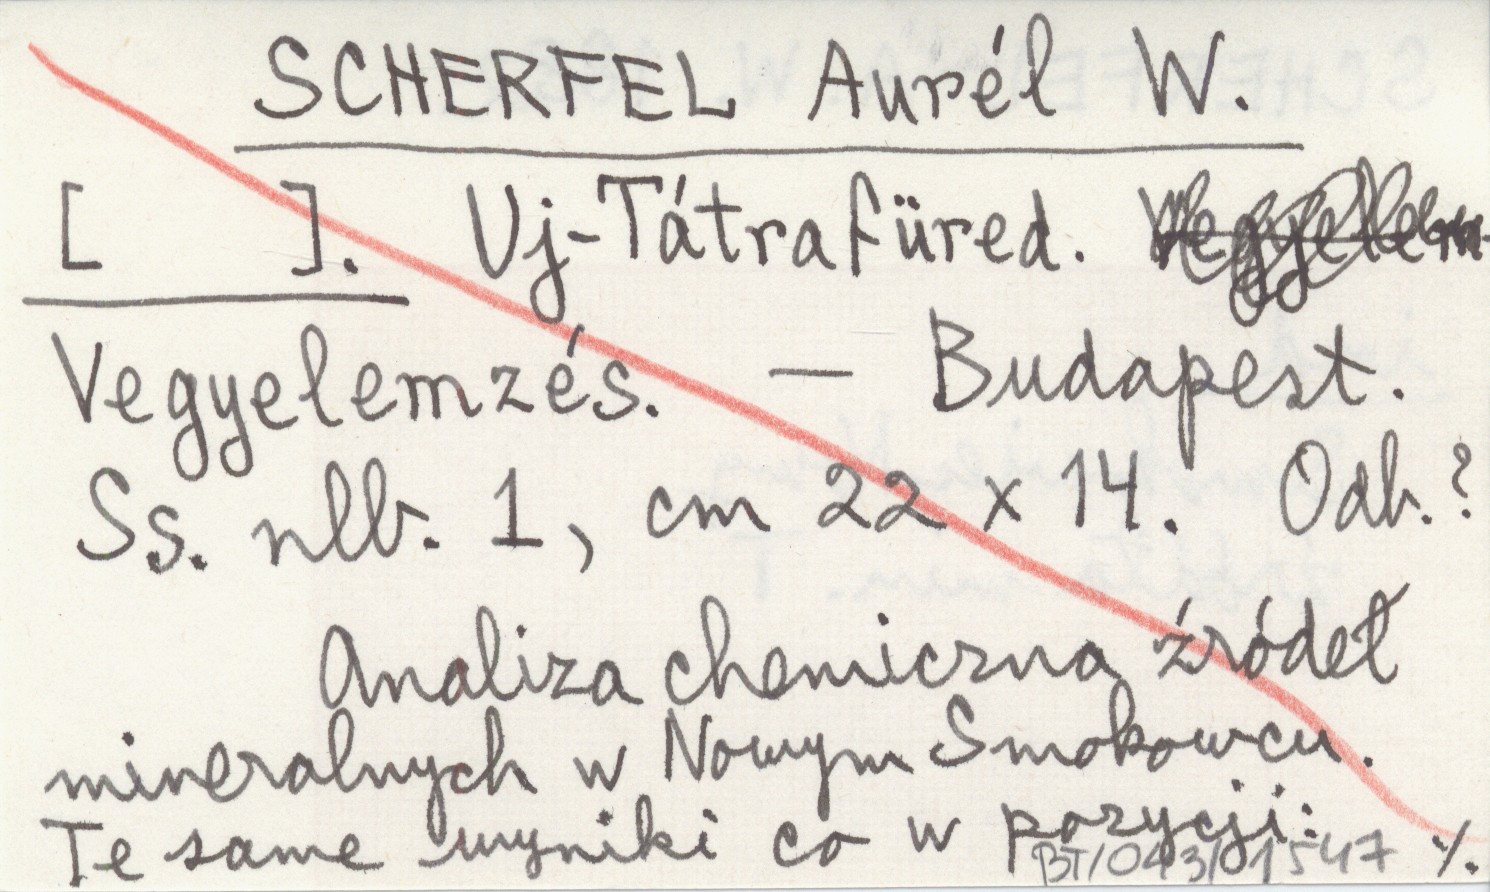 SCHERFEL Aurél W.
[ ]. Uj-Tátrafüred.
Vegyelemzés. — Budapest.
Ss. nlb. 1, cm 22 x 14. Odb.?
Analiza chemiczna źródeł
mineralnych w Nowym Smokowcu.
Te same wyniki co w pozycji: ./.
BT/043/1547